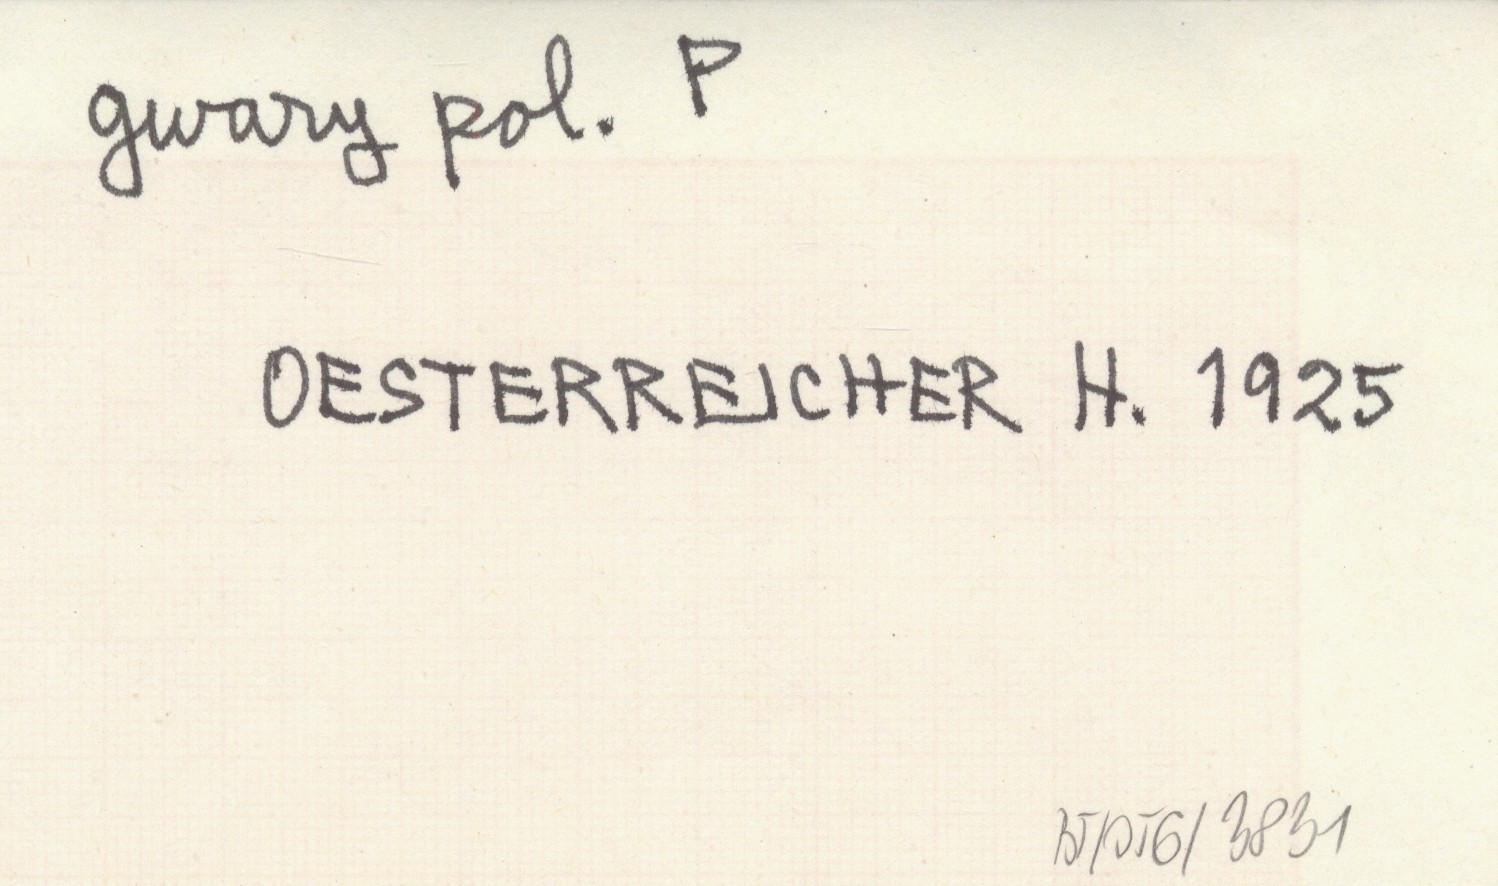 gwary pol. P
OESTERREICHER H. 1925
BJ/DJG/3831